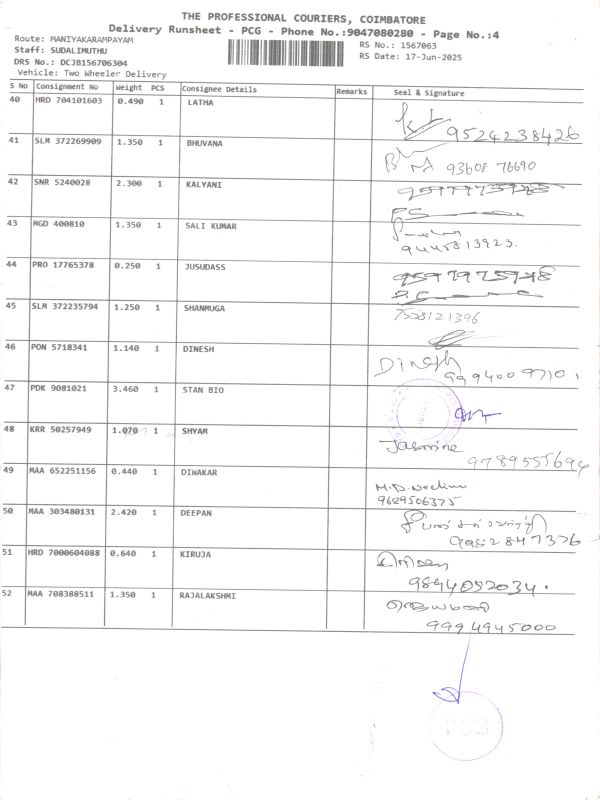 THE PROFESSIONAL COURIERS, COIMBATORE
Delivery Runsheet - PCG - Phone No.:9047080280 - Page No.:4
Route: MANIYAKARAMPAYAM
RS No.: 1567063
Staff: SUDALIMUTHU
RS Date: 17-Jun-2025
DRS No.: DCJB156706304
Vehicle: Two Wheeler Delivery
S No Consignment No Weight PCS Consignee Details Remarks Seal & Signature
40 HRD 704101603 0.490 1 LATHA
9524238426
41 SLM 372269909 1.350 1 BHUVANA
93608 76690
42 SNR 5240028 2.300 1 KALYANI
43 MGD 400810 1.350 1 SALI KUMAR
9445813923.
44 PRO 17765378 0.250 1 JUSUDASS
45 SLM 372235794 1.250 1 SHANMUGA
7558121396
46 PON 5718341 1.140 1 DINESH
Dinesh
47 PDK 9081021 3.460 1 STAN BIO
48 KRR 50257949 1.070 1 SHYAM
Jasmine
49 MAA 652251156 0.440 1 DIWAKAR
9689506375
50 MAA 303480131 2.420 1 DEEPAN
9952847376
51 HRD 7000604088 0.640 1 KIRUJA
9894052034.
52 MAA 708388511 1.350 1 RAJALAKSHMI
9994945000